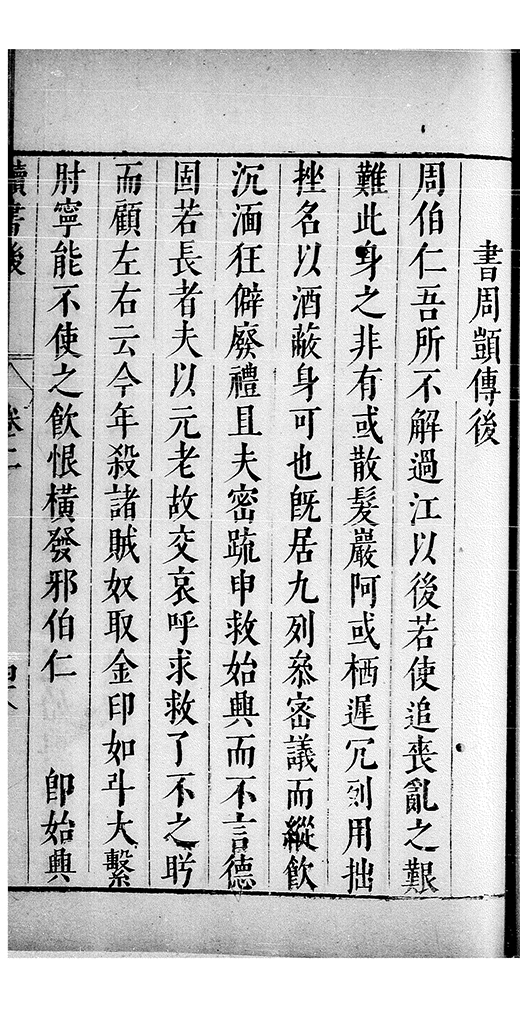 書周顗傳後
周伯仁吾所不解過江以後若使追喪亂之艱
難此身之非有或散髮巖阿或栖遲冗列用拙
挫名以酒蔽身可也旣居九列叅密議而縱飮
沉湎狂僻廢禮且夫密疏申救始興而不言德
固若長者夫以元老故交哀呼求救了不之盻
而顧左右云今年殺諸賊奴取金印如斗大繫
肘寧能不使之飮恨橫發邪伯仁 卽始興
讀書後 卷二